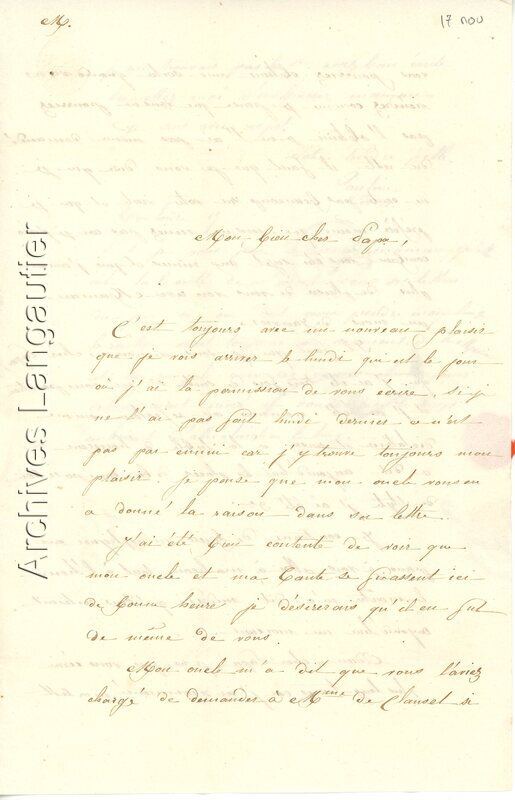 M.
17 nov
Mon bien cher Papa,
C'est toujours avec un nouveau plaisir
que je vois arriver le lundi qui est le jour
où j'ai la permission de vous écrire, si je
ne l'ai pas fait lundi dernier ce n'est
pas par ennui car j'y trouve toujours mon
plaisir. je pense que mon oncle vous en
a donné la raison dans sa lettre.
J'ai été bien contente de voir que
mon oncle et ma tante se fixassent ici
de bonne heure je désirerais qu'il en fut
de même de vous.
Mon oncle m'a dit que vous l'aviez
chargé de demander à Mme de Clauset si
Archives Langautier